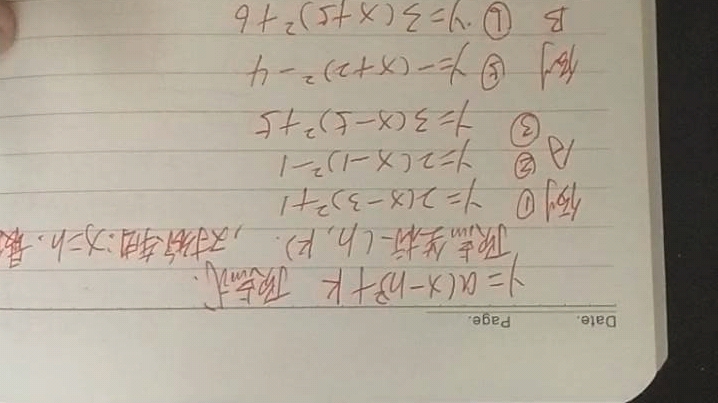 Date. Page.
y=a(x-h)²+k 顶点式.
顶点坐标(h, k). ,对称轴:x=h. 最
例① y=2(x-3)²+1
A ② y=2(x-1)²-1
③ y=3(x-5)²+5
例 y=-(x+2)²-4
B y=3(x+5)²+6